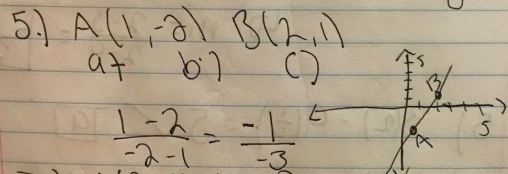 5.) A(1,-2) B(2,1)
a) b) c)
1-2 / -2-1 = -1 / -3
5
B
A
5